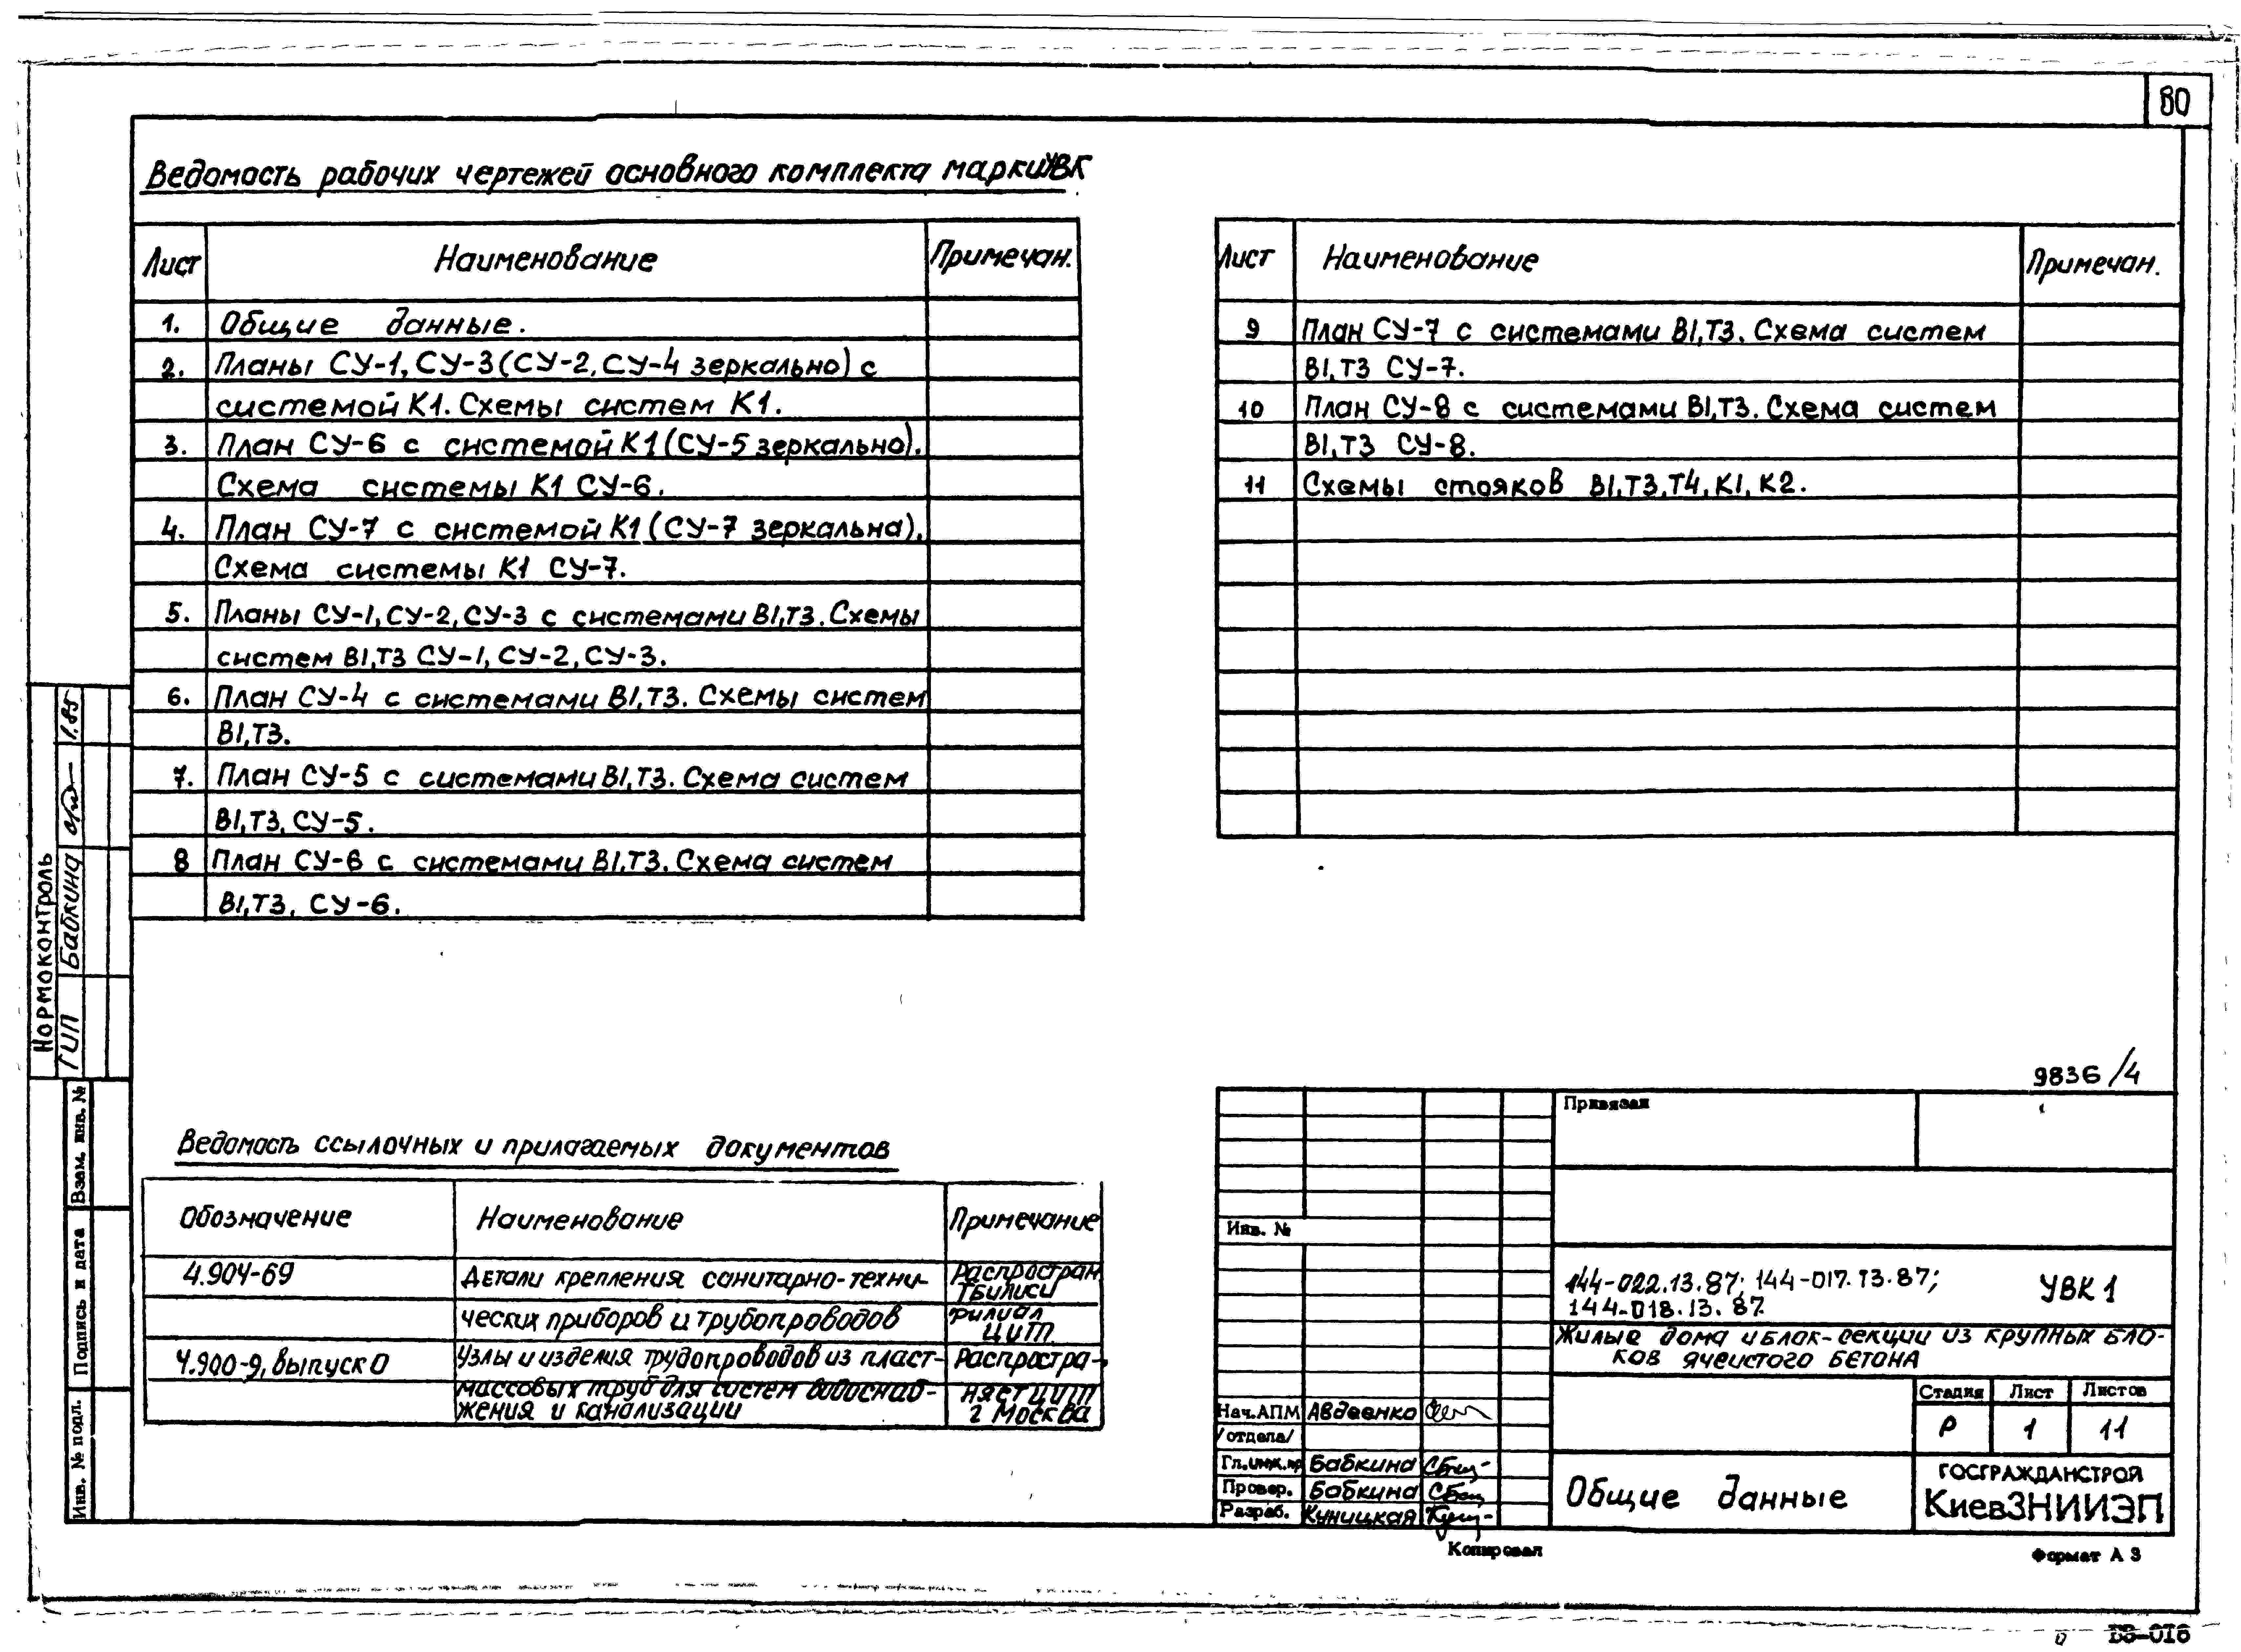 80
Ведомость рабочих чертежей основного комплекта марки УВК
Лист Наименование Примечан.
1. Общие данные.
2. Планы СУ-1, СУ-3 (СУ-2, СУ-4 зеркально) с
системой К1. Схемы систем К1.
3. План СУ-6 с системой К1 (СУ-5 зеркально).
Схема системы К1 СУ-6.
4. План СУ-7 с системой К1 (СУ-7 зеркальна).
Схема системы К1 СУ-7.
5. Планы СУ-1, СУ-2, СУ-3 с системами В1,Т3. Схемы
систем В1,Т3 СУ-1, СУ-2, СУ-3.
6. План СУ-4 с системами В1,Т3. Схемы систем
В1,Т3.
7. План СУ-5 с системами В1,Т3. Схема систем
В1,Т3, СУ-5.
8 План СУ-6 с системами В1,Т3. Схема систем
В1,Т3, СУ-6.
Лист Наименование Примечан.
9 План СУ-7 с системами В1,Т3. Схема систем
В1,Т3 СУ-7.
10 План СУ-8 с системами В1,Т3. Схема систем
В1,Т3 СУ-8.
11 Схемы стояков В1,Т3,Т4,К1,К2.
Нормоконтроль
ГИП Бабкина 1.85
Взам. инв. №
Подпись и дата
Инв. № подл.
Ведомость ссылочных и прилагаемых документов
Обозначение Наименование Примечание
4.904-69 Детали крепления санитарно-техни- Распростран
Тбилиси
ческих приборов и трубопроводов филиал
ЦИТП
4.900-9, выпуск 0 Узлы и изделия трубопроводов из пласт- Распростра-
массовых труб для систем водоснаб- няет ЦИТП
жения и канализации г Москва
9836/4
Привязан
Инв. №
144-022.13.87; 144-017.13.87;
144-018.13.87
УВК 1
Жилые дома и блок-секции из крупных бло-
ков ячеистого бетона
Стадия Лист Листов
Р 1 11
Нач.АПМ Авдеенко
/отдела/
Гл.инж.пр Бабкина
Провер. Бабкина
Разраб. Куницкая
Общие данные
ГОСГРАЖДАНСТРОЙ
КиевЗНИИЭП
Копировал
Формат А 3